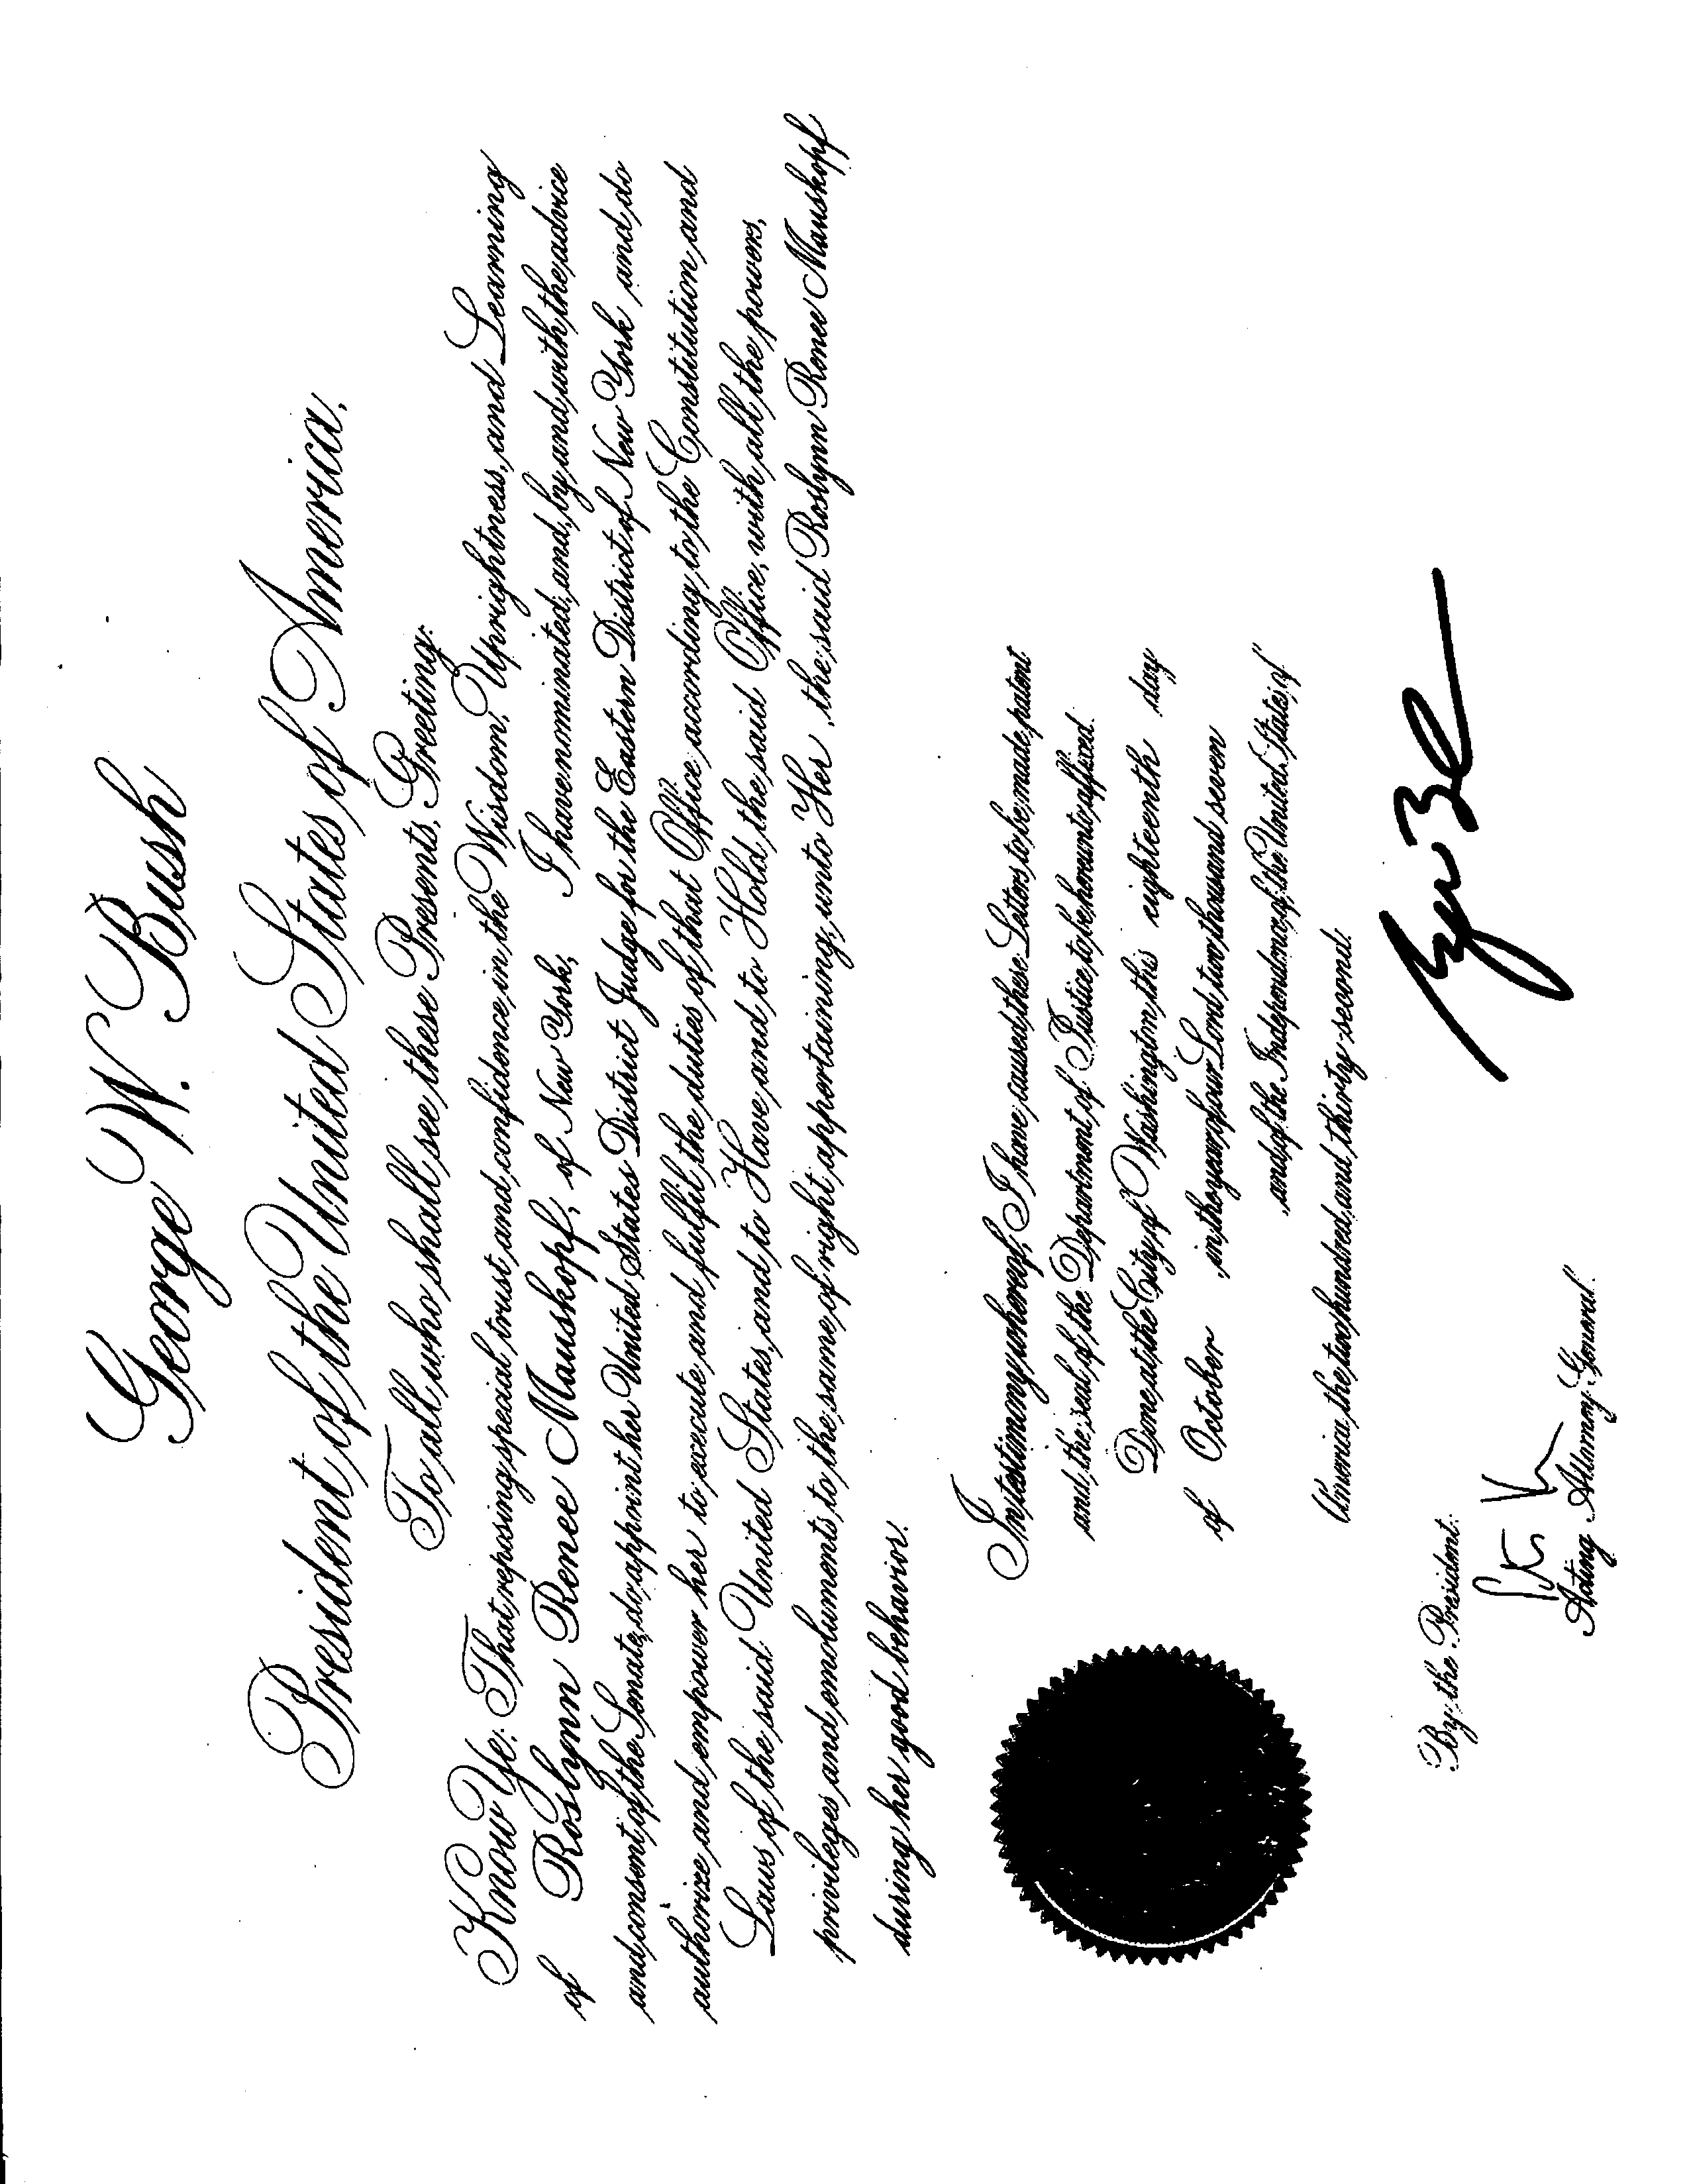 George W. Bush
President of the United States of America,
To all who shall see these Presents, Greeting:
Know Ye: That, reposing special trust and confidence in the Wisdom, Uprightness, and Learning
of Roslynn Renee Mauskopf, of New York, I have nominated, and, by and with the advice
and consent of the Senate, do appoint her United States District Judge for the Eastern District of New York and do
authorize and empower her to execute and fulfil the duties of that Office according to the Constitution and
Laws of the said United States, and to Have and to Hold the said Office, with all the powers,
privileges and emoluments to the same of right appertaining, unto Her, the said Roslynn Renee Mauskopf
during her good behavior.
In testimony whereof, I have caused these Letters to be made patent
and the seal of the Department of Justice to be hereunto affixed.
Done at the City of Washington this eighteenth day
of October in the year of our Lord two thousand seven
and of the Independence of the United States of
America the two hundred and thirty second.
By the President:
Acting Attorney General.